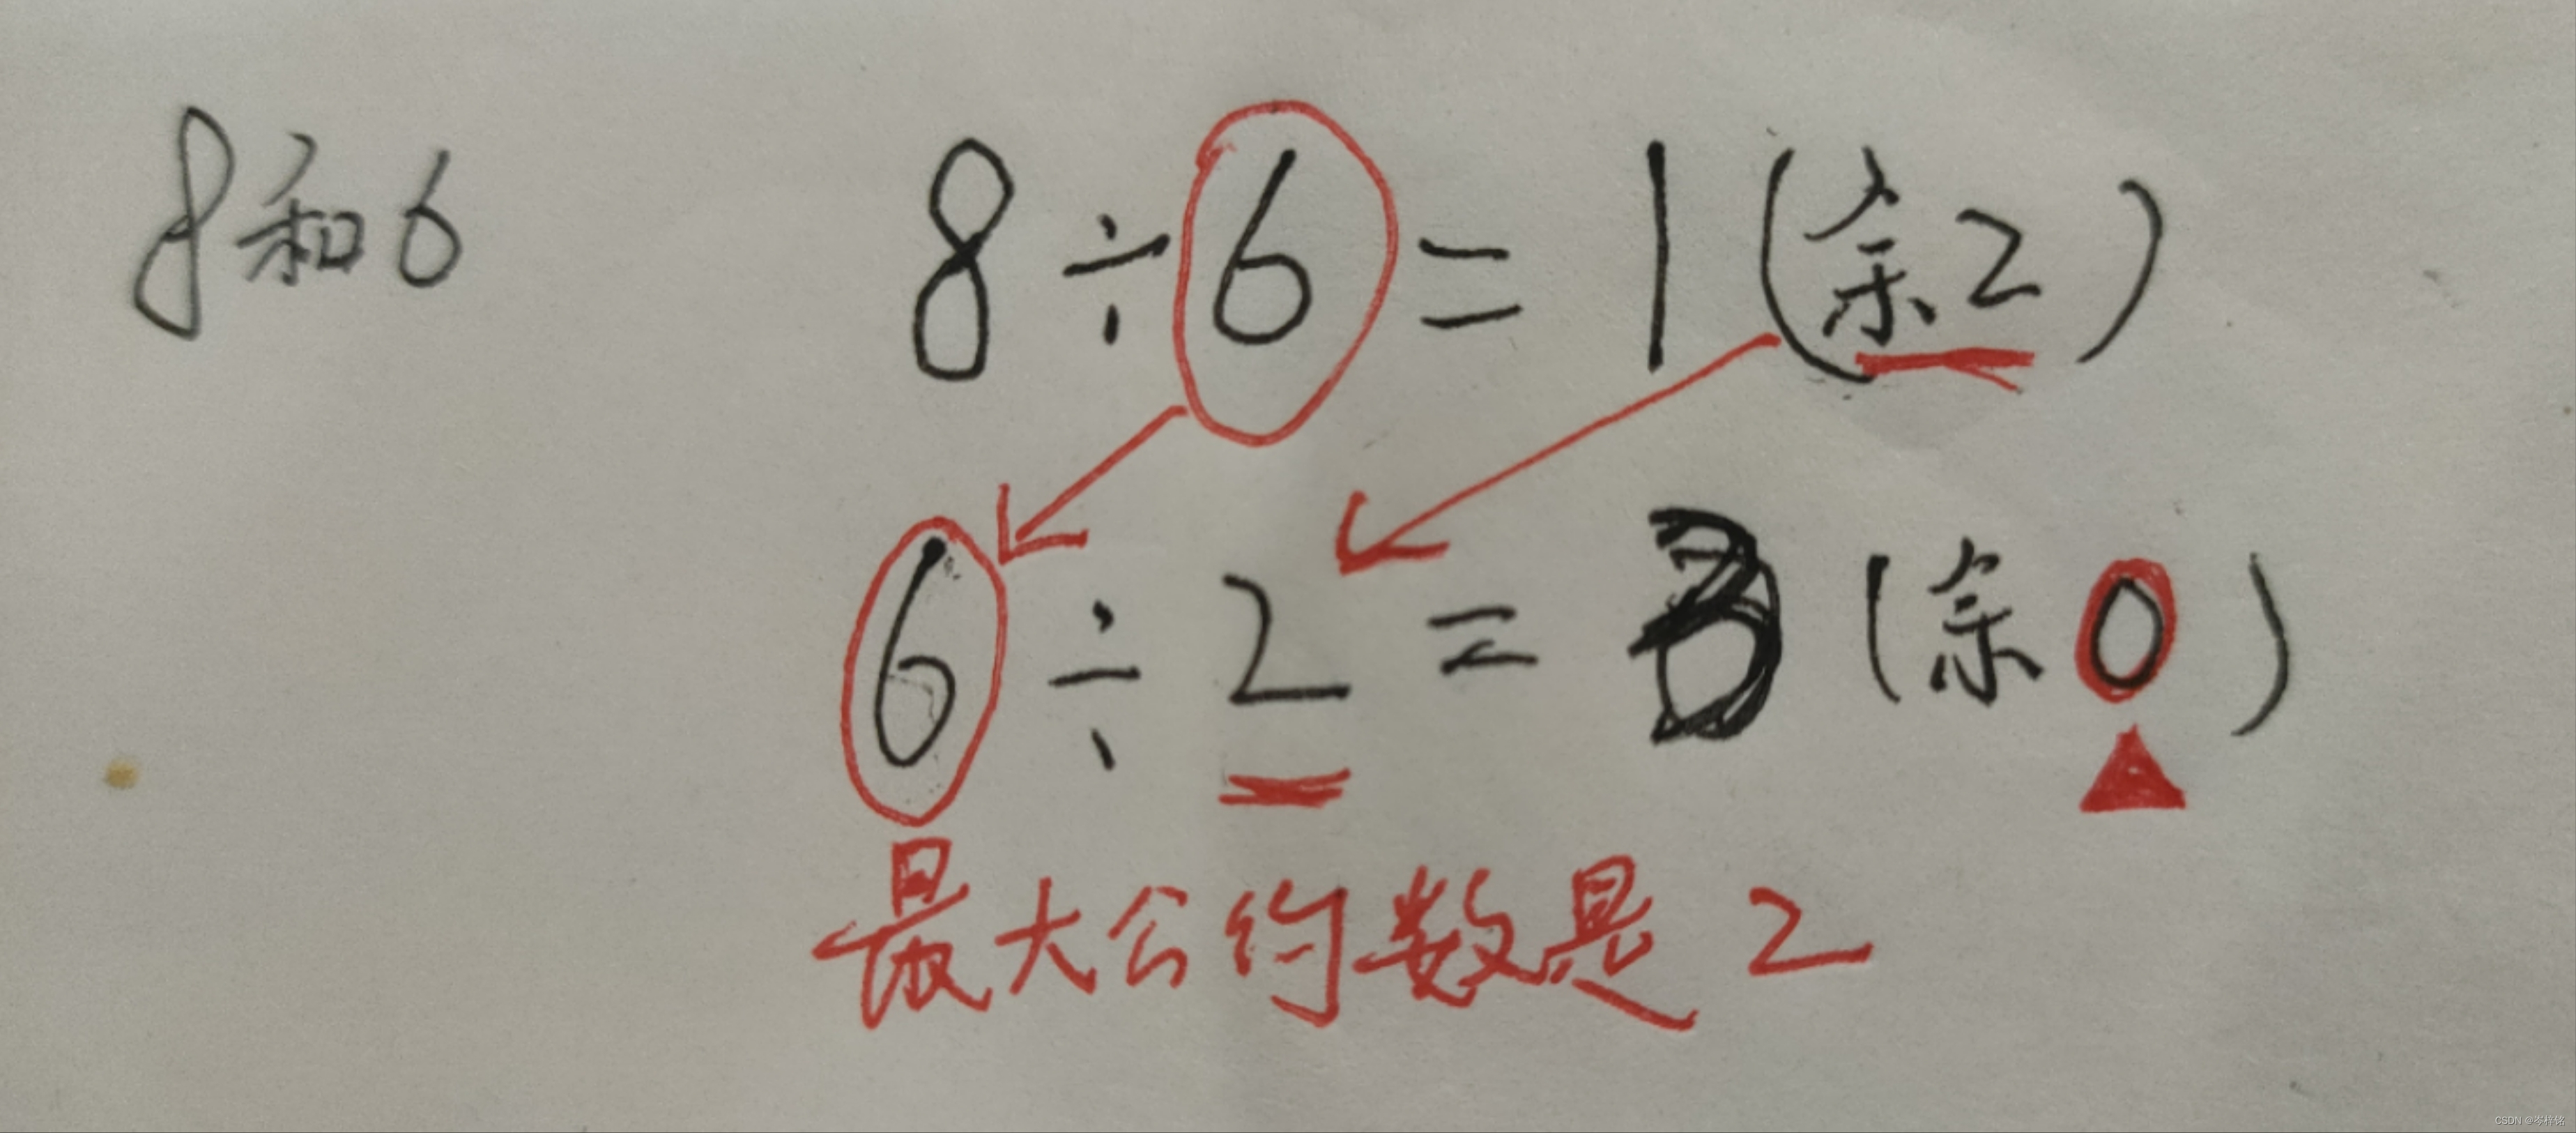 8和6
8÷6=1(余2)
6÷2=3(余0)
最大公约数是2
CSDN @岑梓铭